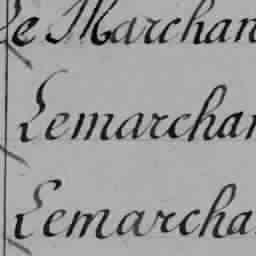 Le Marchan
Lemarchan
Lemarcha